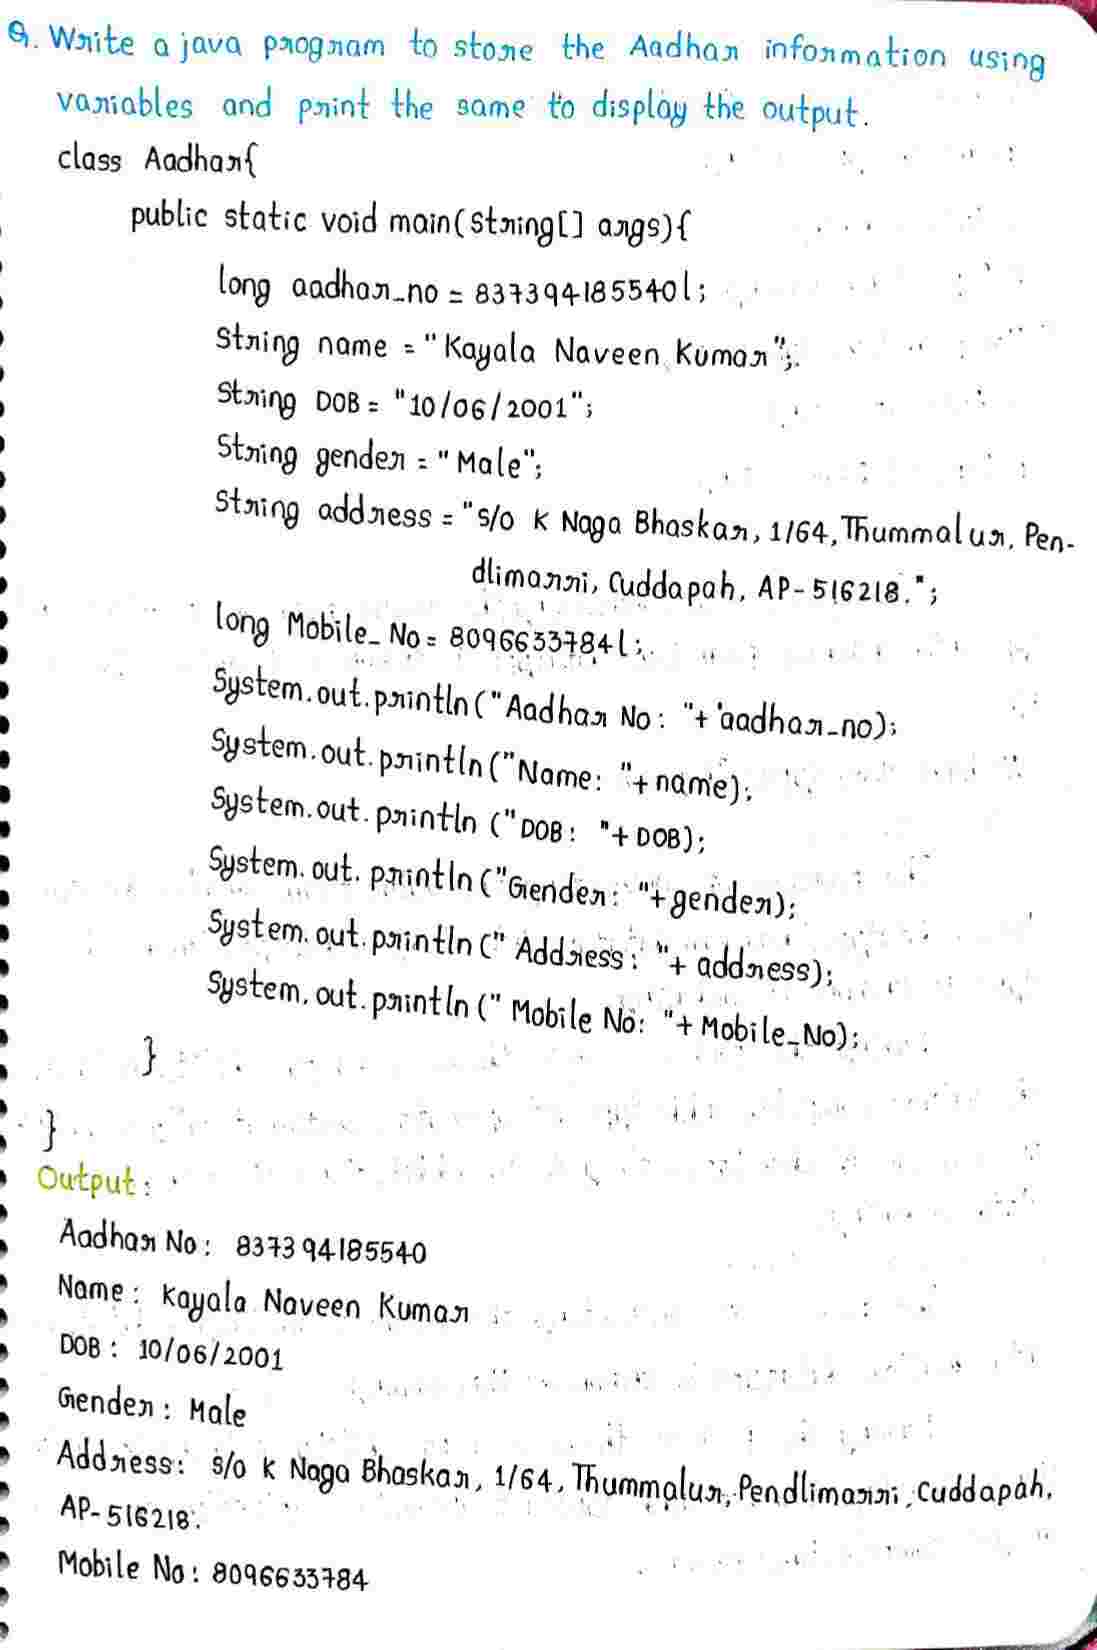 Q. Write a java program to store the Aadhar information using
variables and print the same to display the output.
class Aadhar{
public static void main(String[] args){
long aadhar_no = 837394185540l;
String name = "Kayala Naveen Kumar";
String DOB = "10/06/2001";
String gender = "Male";
String address = "S/o K Naga Bhaskar, 1/64, Thummalur, Pen-
dlimarri, Cuddapah, AP-516218.";
long Mobile_No = 8096633784l;
System.out.println("Aadhar No: "+ aadhar_no);
System.out.println("Name: "+ name);
System.out.println ("DOB: "+ DOB);
System.out.println("Gender: "+gender);
System.out.println(" Address: "+ address);
System.out.println(" Mobile No: "+ Mobile_No);
}
}
Output:
Aadhar No: 837394185540
Name: Kayala Naveen Kumar
DOB: 10/06/2001
Gender: Male
Address: s/o K Naga Bhaskar, 1/64, Thummalur, Pendlimarri, Cuddapah,
AP-516218.
Mobile No: 8096633784